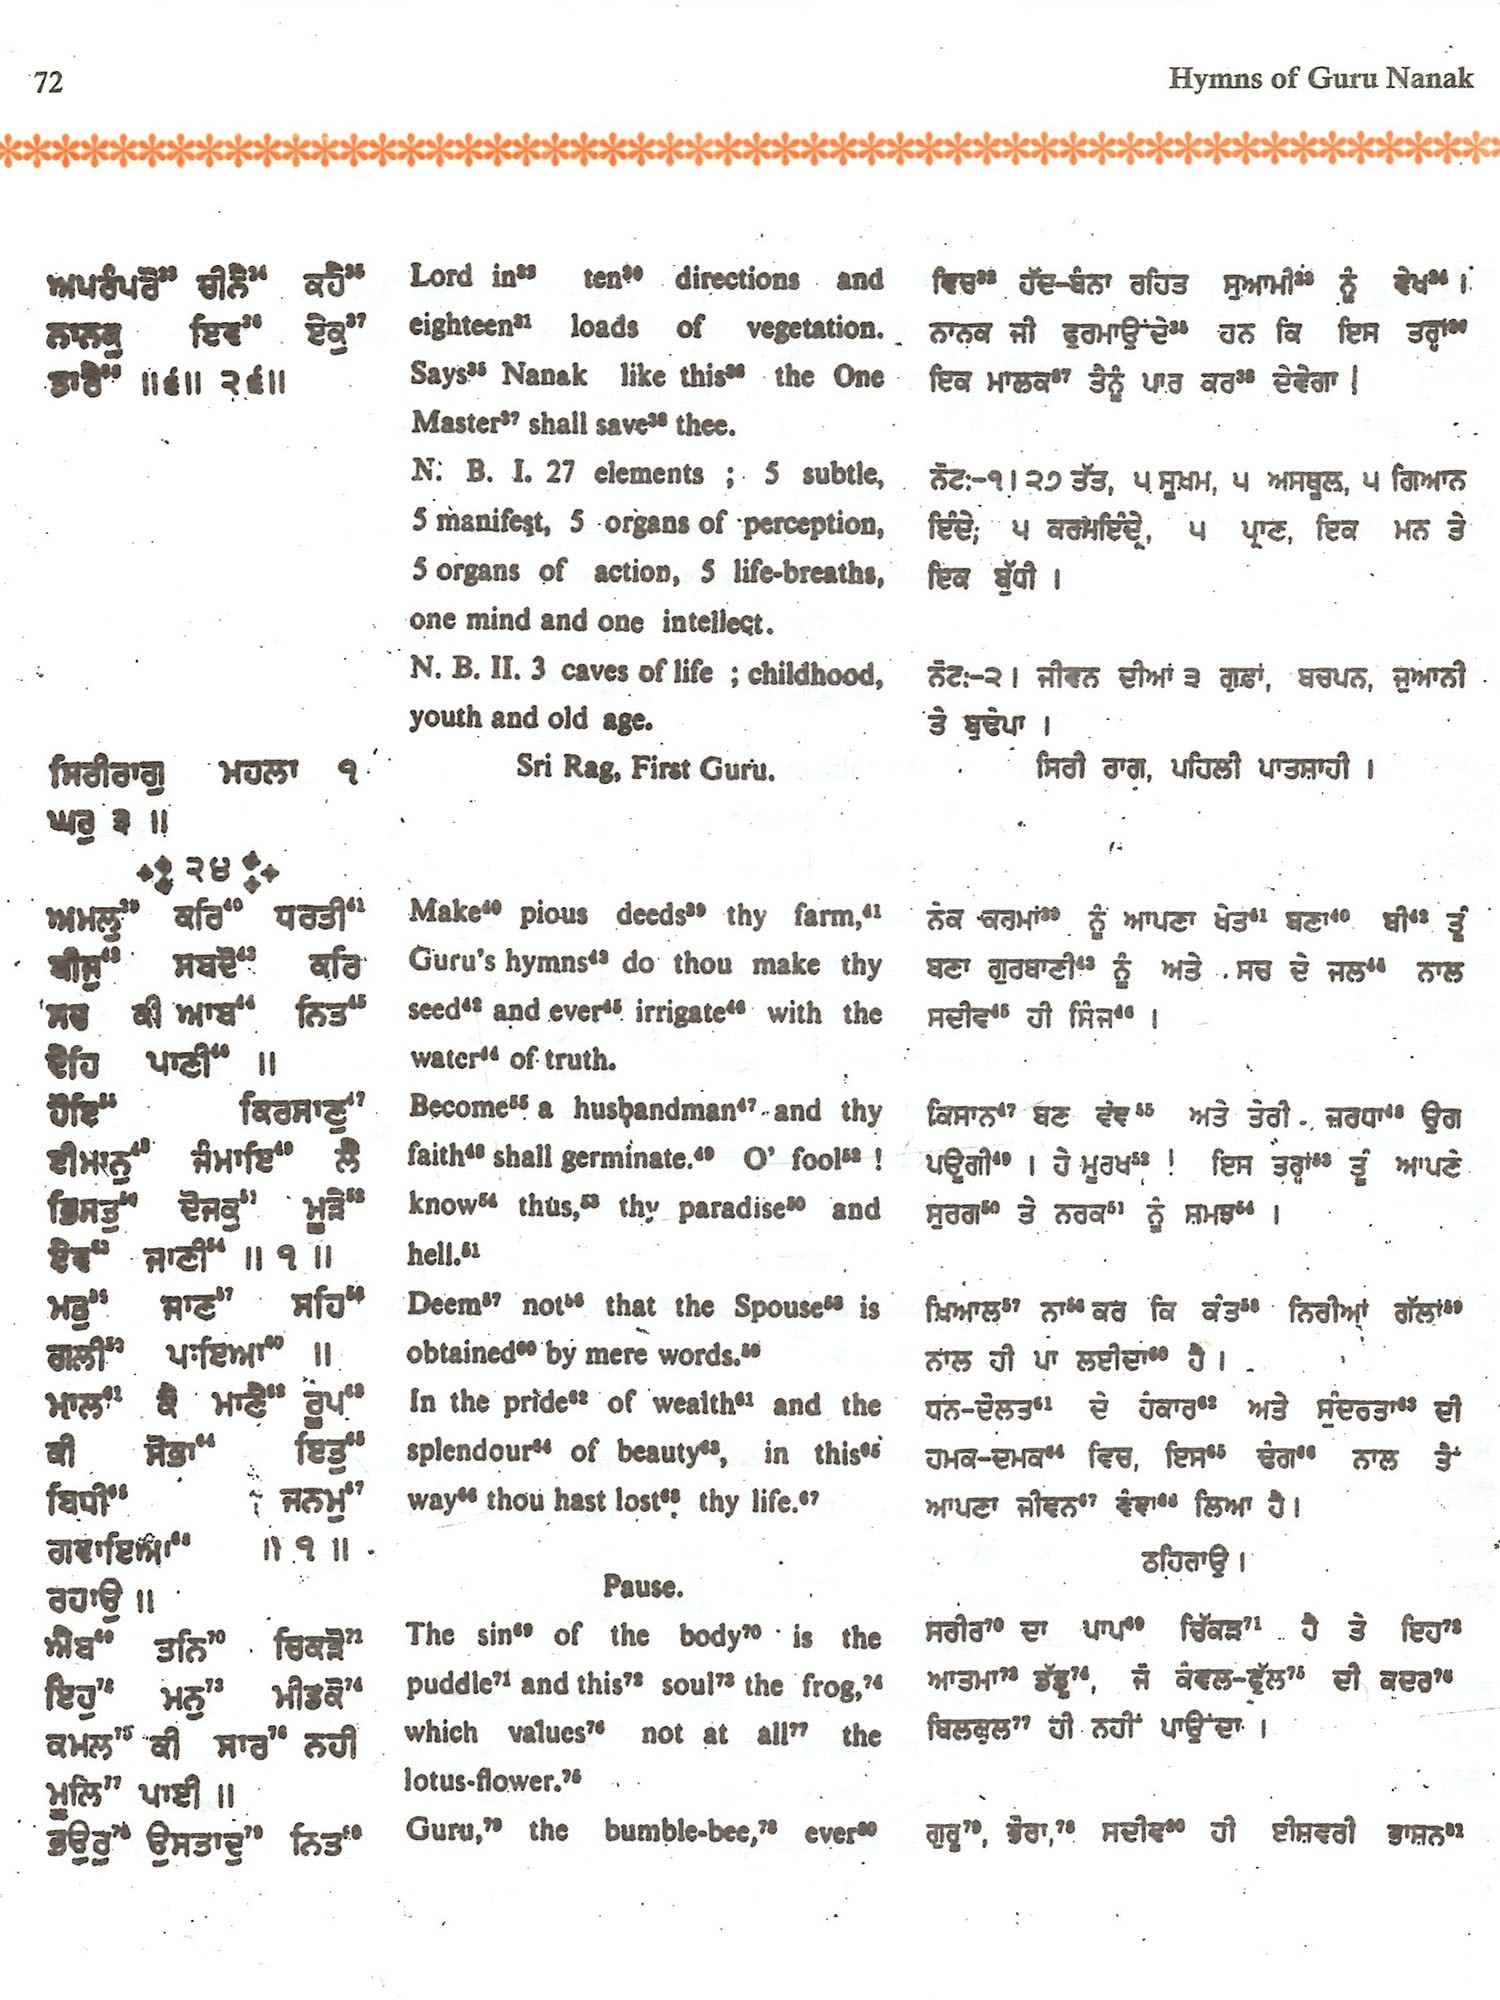 72
Hymns of Guru Nanak
ਅਪਰੰਪਰੋ³³ ਚੀਨੈ³⁴ ਕਹੈ³⁵
ਨਾਨਕੁ ਇਵ³⁶ ਏਕੁ³⁷
ਤਾਰੈ³⁸ ॥੬॥ ੨੬॥
ਸਿਰੀਰਾਗੁ ਮਹਲਾ ੧
ਘਰੁ ੩ ॥
੨੪
ਅਮਲੁ³⁹ ਕਰਿ⁴⁰ ਧਰਤੀ⁴¹
ਬੀਜੁ⁴² ਸਬਦੋ⁴³ ਕਰਿ
ਸਚ ਕੀ ਆਬ⁴⁴ ਨਿਤ⁴⁵
ਦੇਹਿ ਪਾਣੀ⁴⁶ ॥
ਹੋਇ⁵⁵ ਕਿਰਸਾਣੁ⁴⁷
ਈਮਾਨੁ⁴⁸ ਜੰਮਾਇ⁴⁹ ਲੈ
ਭਿਸਤੁ⁵⁰ ਦੋਜਕੁ⁵¹ ਮੂੜੇ⁵²
ਏਵ⁵³ ਜਾਣੀ⁵⁴ ॥ ੧ ॥
ਮਤੁ⁵⁶ ਜਾਣ⁵⁷ ਸਹਿ⁵⁸
ਗਲੀ⁵⁹ ਪਾਇਆ⁶⁰ ॥
ਮਾਲ⁶¹ ਕੈ ਮਾਣੈ⁶² ਰੂਪ⁶³
ਕੀ ਸੋਭਾ⁶⁴ ਇਤੁ⁶⁵
ਬਿਧੀ⁶⁶ ਜਨਮੁ⁶⁷
ਗਵਾਇਆ⁶⁸ ॥ ੧ ॥
ਰਹਾਉ ॥
ਐਬ⁶⁹ ਤਨਿ⁷⁰ ਚਿਕੜੋ⁷¹
ਇਹੁ⁷² ਮਨੁ⁷³ ਮੀਡਕੋ⁷⁴
ਕਮਲ⁷⁵ ਕੀ ਸਾਰ⁷⁶ ਨਹੀ
ਮੂਲਿ⁷⁷ ਪਾਈ ॥
ਭਉਰੁ⁷⁸ ਉਸਤਾਦੁ⁷⁹ ਨਿਤ⁸⁰
Lord in³² ten³⁰ directions and
eighteen³¹ loads of vegetation.
Says³⁵ Nanak like this³⁶ the One
Master³⁷ shall save³⁸ thee.
N. B. I. 27 elements ; 5 subtle,
5 manifest, 5 organs of perception,
5 organs of action, 5 life-breaths,
one mind and one intellect.
N. B. II. 3 caves of life ; childhood,
youth and old age.
Sri Rag, First Guru.
Make⁴⁰ pious deeds³⁹ thy farm,⁴¹
Guru's hymns⁴³ do thou make thy
seed⁴² and ever⁴⁵ irrigate⁴⁶ with the
water⁴⁴ of truth.
Become⁵⁵ a husbandman⁴⁷ and thy
faith⁴⁸ shall germinate.⁴⁹ O' fool⁵² !
know⁵⁴ thus,⁵³ thy paradise⁵⁰ and
hell.⁵¹
Deem⁵⁷ not⁵⁶ that the Spouse⁵⁸ is
obtained⁶⁰ by mere words.⁵⁹
In the pride⁶² of wealth⁶¹ and the
splendour⁶⁴ of beauty⁶³, in this⁶⁵
way⁶⁶ thou hast lost⁶⁸ thy life.⁶⁷
Pause.
The sin⁶⁹ of the body⁷⁰ is the
puddle⁷¹ and this⁷² soul⁷³ the frog,⁷⁴
which values⁷⁶ not at all⁷⁷ the
lotus-flower.⁷⁵
Guru,⁷⁹ the bumble-bee,⁷⁸ ever⁸⁰
ਵਿਚ³² ਹੱਦ-ਬੰਨਾ ਰਹਿਤ ਸੁਆਮੀ³³ ਨੂੰ ਵੇਖ³⁴ ।
ਨਾਨਕ ਜੀ ਫੁਰਮਾਉਂਦੇ³⁵ ਹਨ ਕਿ ਇਸ ਤਰ੍ਹਾਂ³⁶
ਇਕ ਮਾਲਕ³⁷ ਤੈਨੂੰ ਪਾਰ ਕਰ³⁸ ਦੇਵੇਗਾ |
ਨੋਟ:-੧। ੨੭ ਤੱਤ, ੫ ਸੂਖਮ, ੫ ਅਸਥੂਲ, ੫ ਗਿਆਨ
ਇੰਦ੍ਰੇ; ੫ ਕਰਮਇੰਦ੍ਰੇ, ੫ ਪ੍ਰਾਣ, ਇਕ ਮਨ ਤੇ
ਇਕ ਬੁੱਧੀ ।
ਨੋਟ:-੨। ਜੀਵਨ ਦੀਆਂ ੩ ਗੁਫ਼ਾਂ, ਬਚਪਨ, ਜੁਆਨੀ
ਤੇ ਬੁਢੇਪਾ ।
ਸਿਰੀ ਰਾਗ, ਪਹਿਲੀ ਪਾਤਸ਼ਾਹੀ ।
ਨੇਕ ਕਰਮਾਂ³⁹ ਨੂੰ ਆਪਣਾ ਖੇਤ⁴¹ ਬਣਾ⁴⁰ ਬੀ⁴² ਤੂੰ
ਬਣਾ ਗੁਰਬਾਣੀ⁴³ ਨੂੰ ਅਤੇ ਸਚ ਦੇ ਜਲ⁴⁴ ਨਾਲ
ਸਦੀਵ⁴⁵ ਹੀ ਸਿੰਜ⁴⁶ ।
ਕਿਸਾਨ⁴⁷ ਬਣ ਵੰਞ⁵⁵ ਅਤੇ ਤੇਰੀ ਸ਼ਰਧਾ⁴⁸ ਉਗ
ਪਊਗੀ⁴⁹ । ਹੇ ਮੂਰਖ⁵² ! ਇਸ ਤਰ੍ਹਾਂ⁵³ ਤੂੰ ਆਪਣੇ
ਸੁਰਗ⁵⁰ ਤੇ ਨਰਕ⁵¹ ਨੂੰ ਸ਼ਮਝ⁵⁴ ।
ਖ਼ਿਆਲ⁵⁷ ਨਾ⁵⁶ ਕਰ ਕਿ ਕੰਤ⁵⁸ ਨਿਰੀਆਂ ਗੱਲਾਂ⁵⁹
ਨਾਲ ਹੀ ਪਾ ਲਈਦਾ⁶⁰ ਹੈ ।
ਧਨ-ਦੌਲਤ⁶¹ ਦੇ ਹੰਕਾਰ⁶² ਅਤੇ ਸੁੰਦਰਤਾ⁶³ ਦੀ
ਚਮਕ-ਦਮਕ⁶⁴ ਵਿਚ, ਇਸ⁶⁵ ਢੰਗ⁶⁶ ਨਾਲ ਤੈਂ
ਆਪਣਾ ਜੀਵਨ⁶⁷ ਵੰਞਾ⁶⁸ ਲਿਆ ਹੈ।
ਠਹਿਰਾਉ ।
ਸਰੀਰ⁷⁰ ਦਾ ਪਾਪ⁶⁹ ਚਿੱਕੜ⁷¹ ਹੈ ਤੇ ਇਹ⁷²
ਆਤਮਾ⁷³ ਡੱਡੂ⁷⁴, ਜੋ ਕੰਵਲ-ਫੁੱਲ⁷⁵ ਦੀ ਕਦਰ⁷⁶
ਬਿਲਕੁਲ⁷⁷ ਹੀ ਨਹੀਂ ਪਾਉਂਦਾ ।
ਗੁਰੂ⁷⁹, ਭੌਰਾ,⁷⁸ ਸਦੀਵ⁸⁰ ਹੀ ਈਸ਼ਵਰੀ ਭਾਸ਼ਨ⁸¹